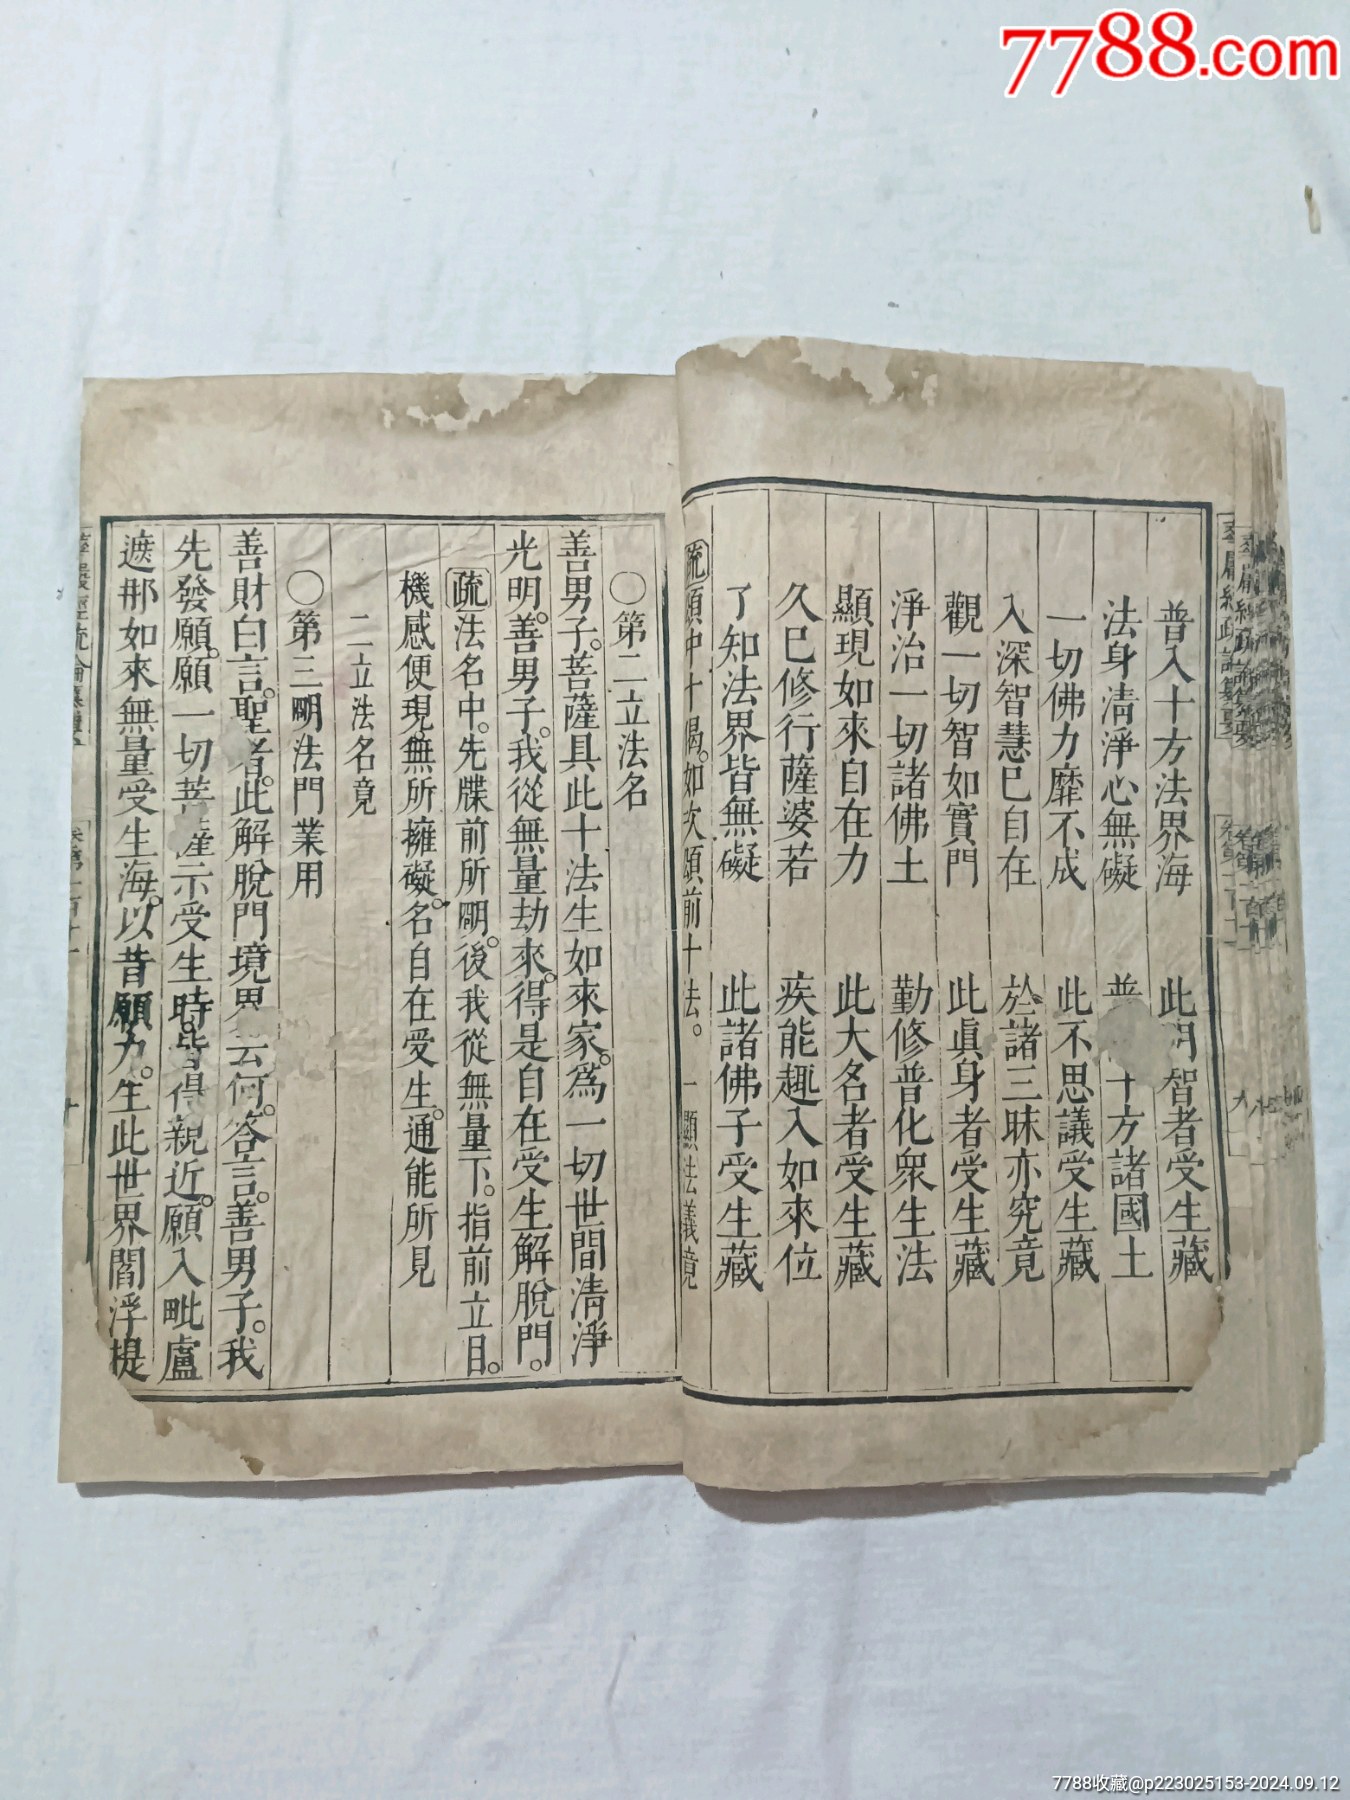 7788.com
普入十方法界海 此明智者受生藏
法身清淨心無礙 普 十方諸國土
一切佛力靡不成 此不思議受生藏
入深智慧已自在 於諸三昧亦究竟
觀一切智如實門 此眞身者受生藏
淨治一切諸佛土 勤修普化衆生法
顯現如來自在力 此大名者受生藏
久已修行薩婆若 疾能趣入如來位
了知法界皆無礙 此諸佛子受生藏
疏頌中十偈。如次頌前十法。一顯法義竟
○第二立法名
善男子。菩薩具此十法生如來家。爲一切世間清淨
光明。善男子。我從無量劫來。得是自在受生解脫門。
疏法名中。先牒前所明。後我從無量下。指前立目。
機感便現無所擁礙。名自在受生。通能所見
二立法名竟
○第三明法門業用
善財白言。聖者。此解脫門境界云何。答言。善男子。我
先發願。願一切菩薩示受生時。皆得親近。願入毗盧
遮那如來無量受生海。以昔願力。生此世界閻浮提
華嚴經疏論纂要
7788收藏@p223025153-2024.09.12